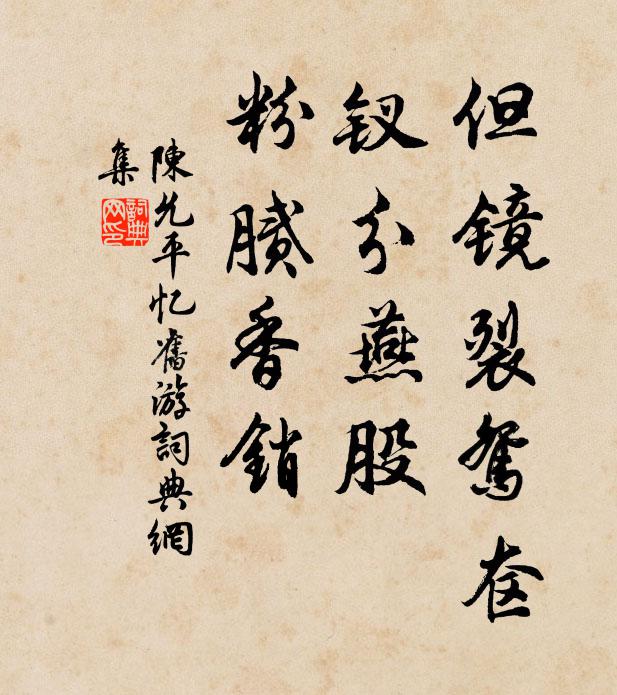 但镜裂鴛奁
钗分燕股
粉膩香銷
陳允平忆舊游詞典網
集
詞典网印